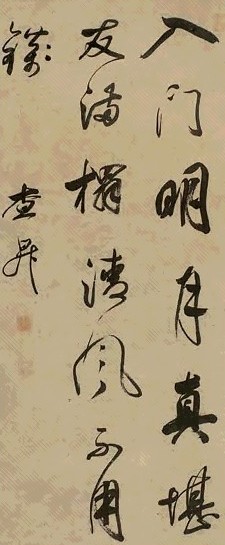 入门明月真堪
友满榻清风不用
钱 查昇